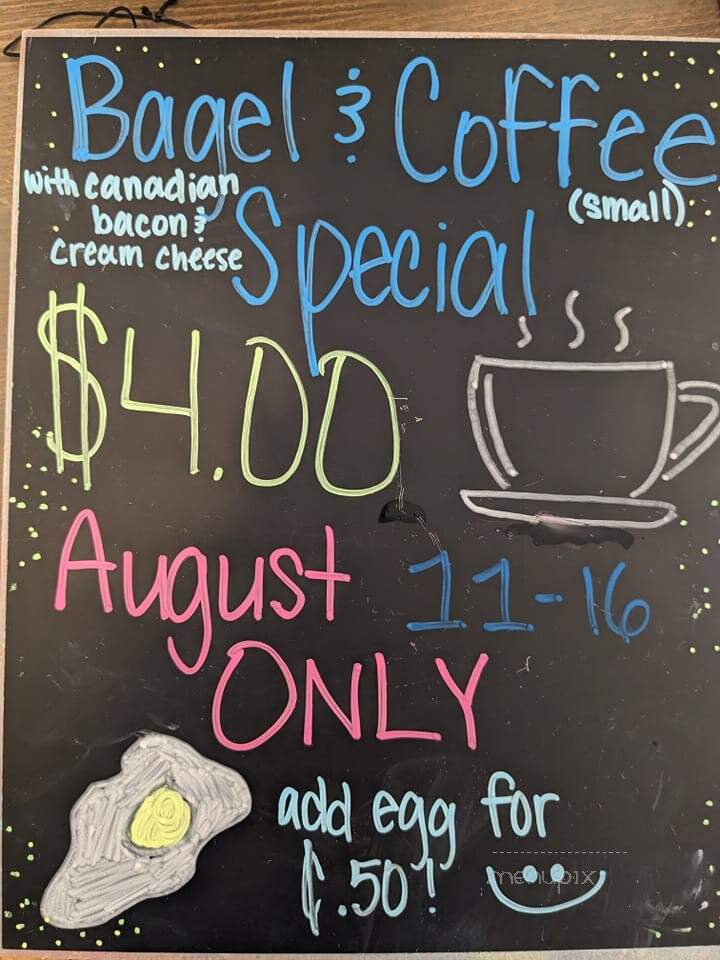 Bagel & Coffee
with canadian
bacon &
cream cheese
(small)
Special
$4.00
August 11-16
ONLY
add egg for
¢.50!
menupix